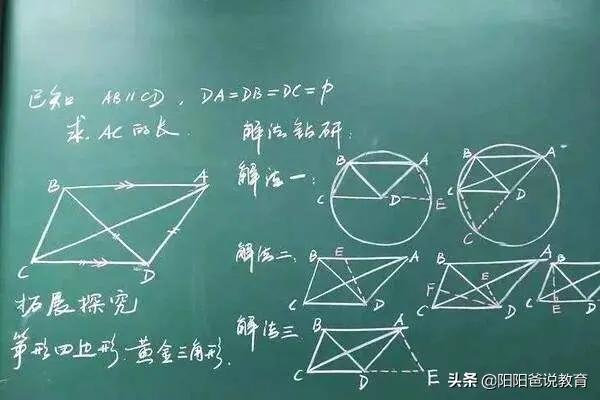 已知 AB∥CD，DA=DB=DC=p
求 AC的长.
解法钻研：
解法一：
B A C D E
B A C D C
B A C D
解法二：
B E A C D
B A E F C D
B E D
拓展探究
筝形四边形.黄金三角形.
解法三
B A C D E
头条 @阳阳爸说教育